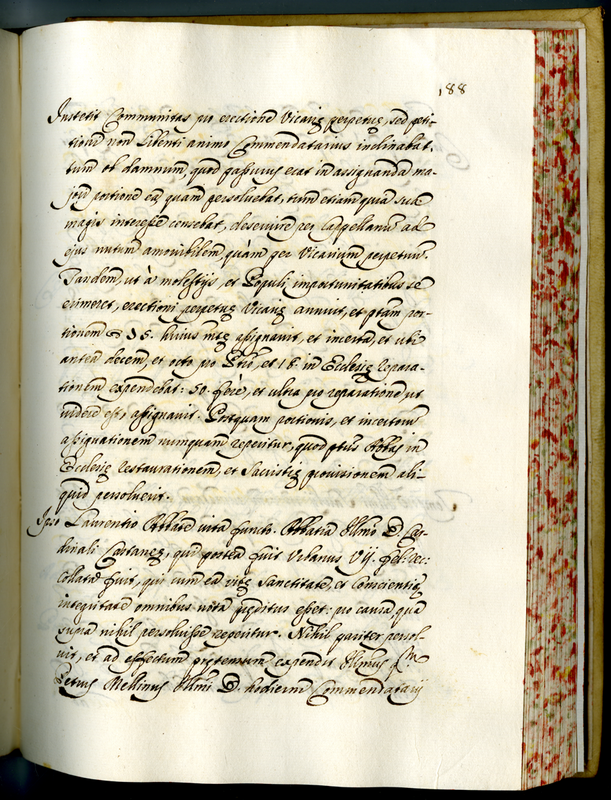 188
Institit Communitas pro erectione Vicarię perpetuę, sed peti-
tioni non libenti animo Commendatarius inclinabat,
tum ob damnum, quod passurus erat in assignanda ma-
jori portione ea, quam persoluebat, tum etiam quia sua
magis interesse censebat, deseruire per Cappellanum ad
ejus nutum amouibilem, quàm per Vicarium perpetuum.
Tandem, ut à molestijs, et Populi importunitatibus se
eximeret, erectioni perpetuę Vicarię annuit, et ptam por-
tionem 35. huius mtę assignauit, et incerta, et ubi
antea decem, et octo pro et 18. in Ecclesię repara-
tionem expendebat: 50. ferè, et ultra pro reparatione ut
uidere est, assignauit. Postquam portionis, et incertorum
assignationem nunquam reperitur, quod ptus Abbas in
Ecclesię restaurationem, et Sacristię prouisionem ali-
quid persoluerit.
Ipso Laurentio Abbate uita functo. Abbatia Illmo D. Car-
dinali Castaneę, qui postea fuit Urbanus VII. fel: rec:
Collata fuit, qui cum ea uitę Sanctitate, et Conscientię
integritate omnibus nota pręditus esset: pro causa, qua
supra nihil persoluisse reperitur. Nihil pariter persol-
uit, et ad effectum pręsentem expendit Illmus
Petrus Mellinus Illmi D. hodierni Commendatarij